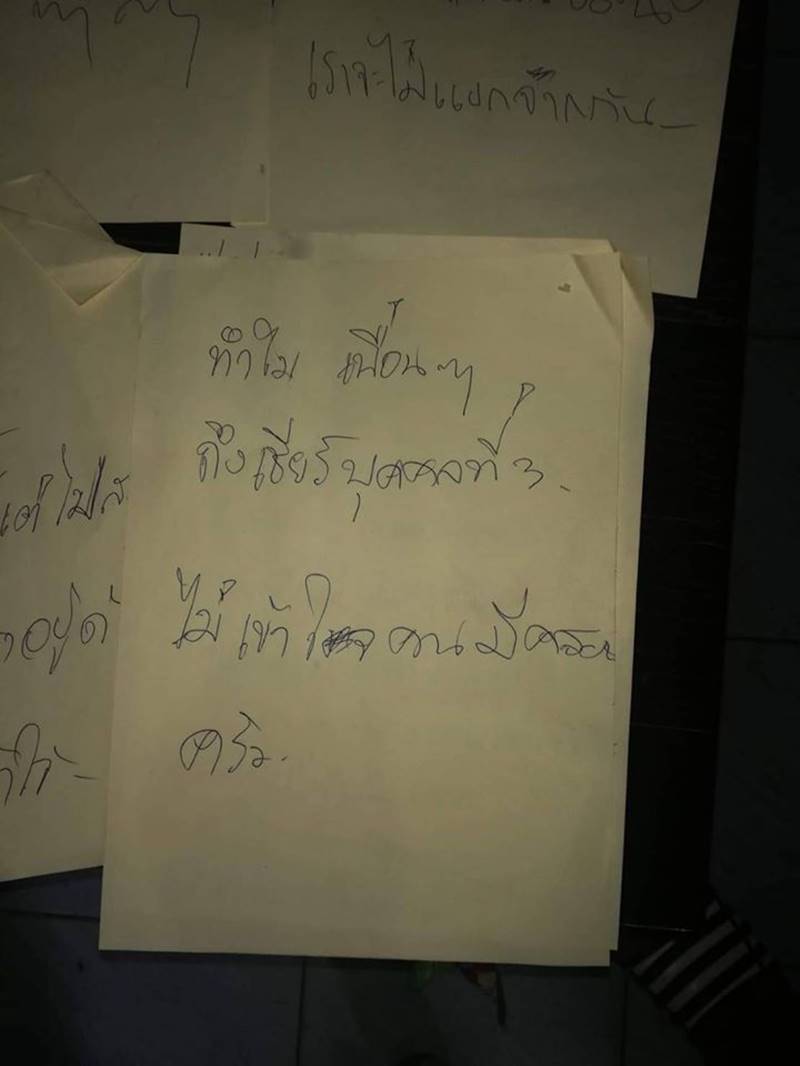 เราจะไม่แยกจากกัน
ทำไม เพื่อนๆ
ถึงเชียร์บุคคลที่ 3.
ไม่เข้าใจ คนมีครอบ
ครัว.
แต่ไม่ส
อยู่ด้